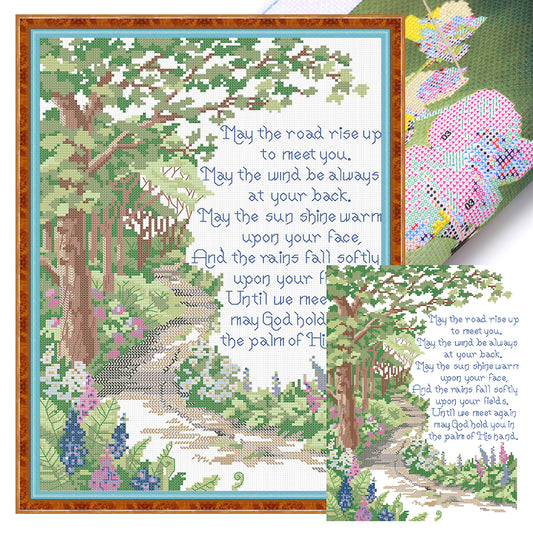 May the road rise up
to meet you.
May the wind be always
at your back.
May the sun shine warm
upon your face,
And the rains fall softly
upon your f
Until we mee
may God hold
the palm of Hi
May the road rise up
to meet you.
May the wind be always
at your back.
May the sun shine warm
upon your face,
And the rains fall softly
upon your fields.
Until we meet again
may God hold you in
the palm of His hand.